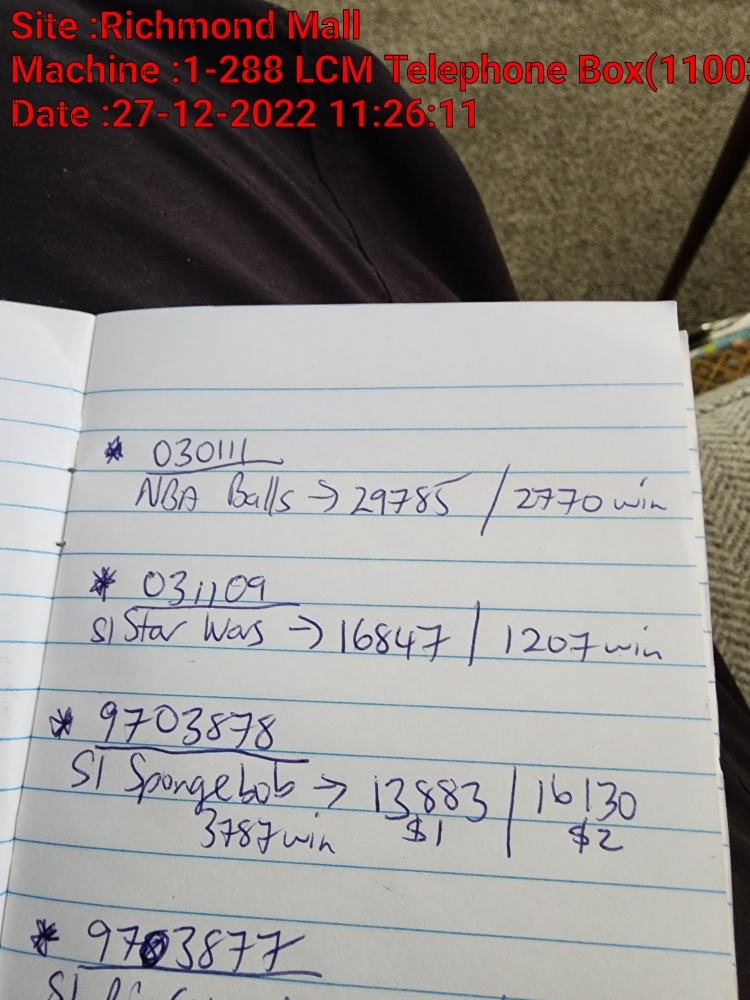 Site :Richmond Mall
Machine :1-288 LCM Telephone Box(11003
Date :27-12-2022 11:26:11
* 030111
NBA Balls → 29785 / 2770 win
* 031109
SI Star Wars → 16847 | 1207 win
* 9703878
SI Spongebob → 13883 | 16130
3787 win $1 $2
* 9703877
SI